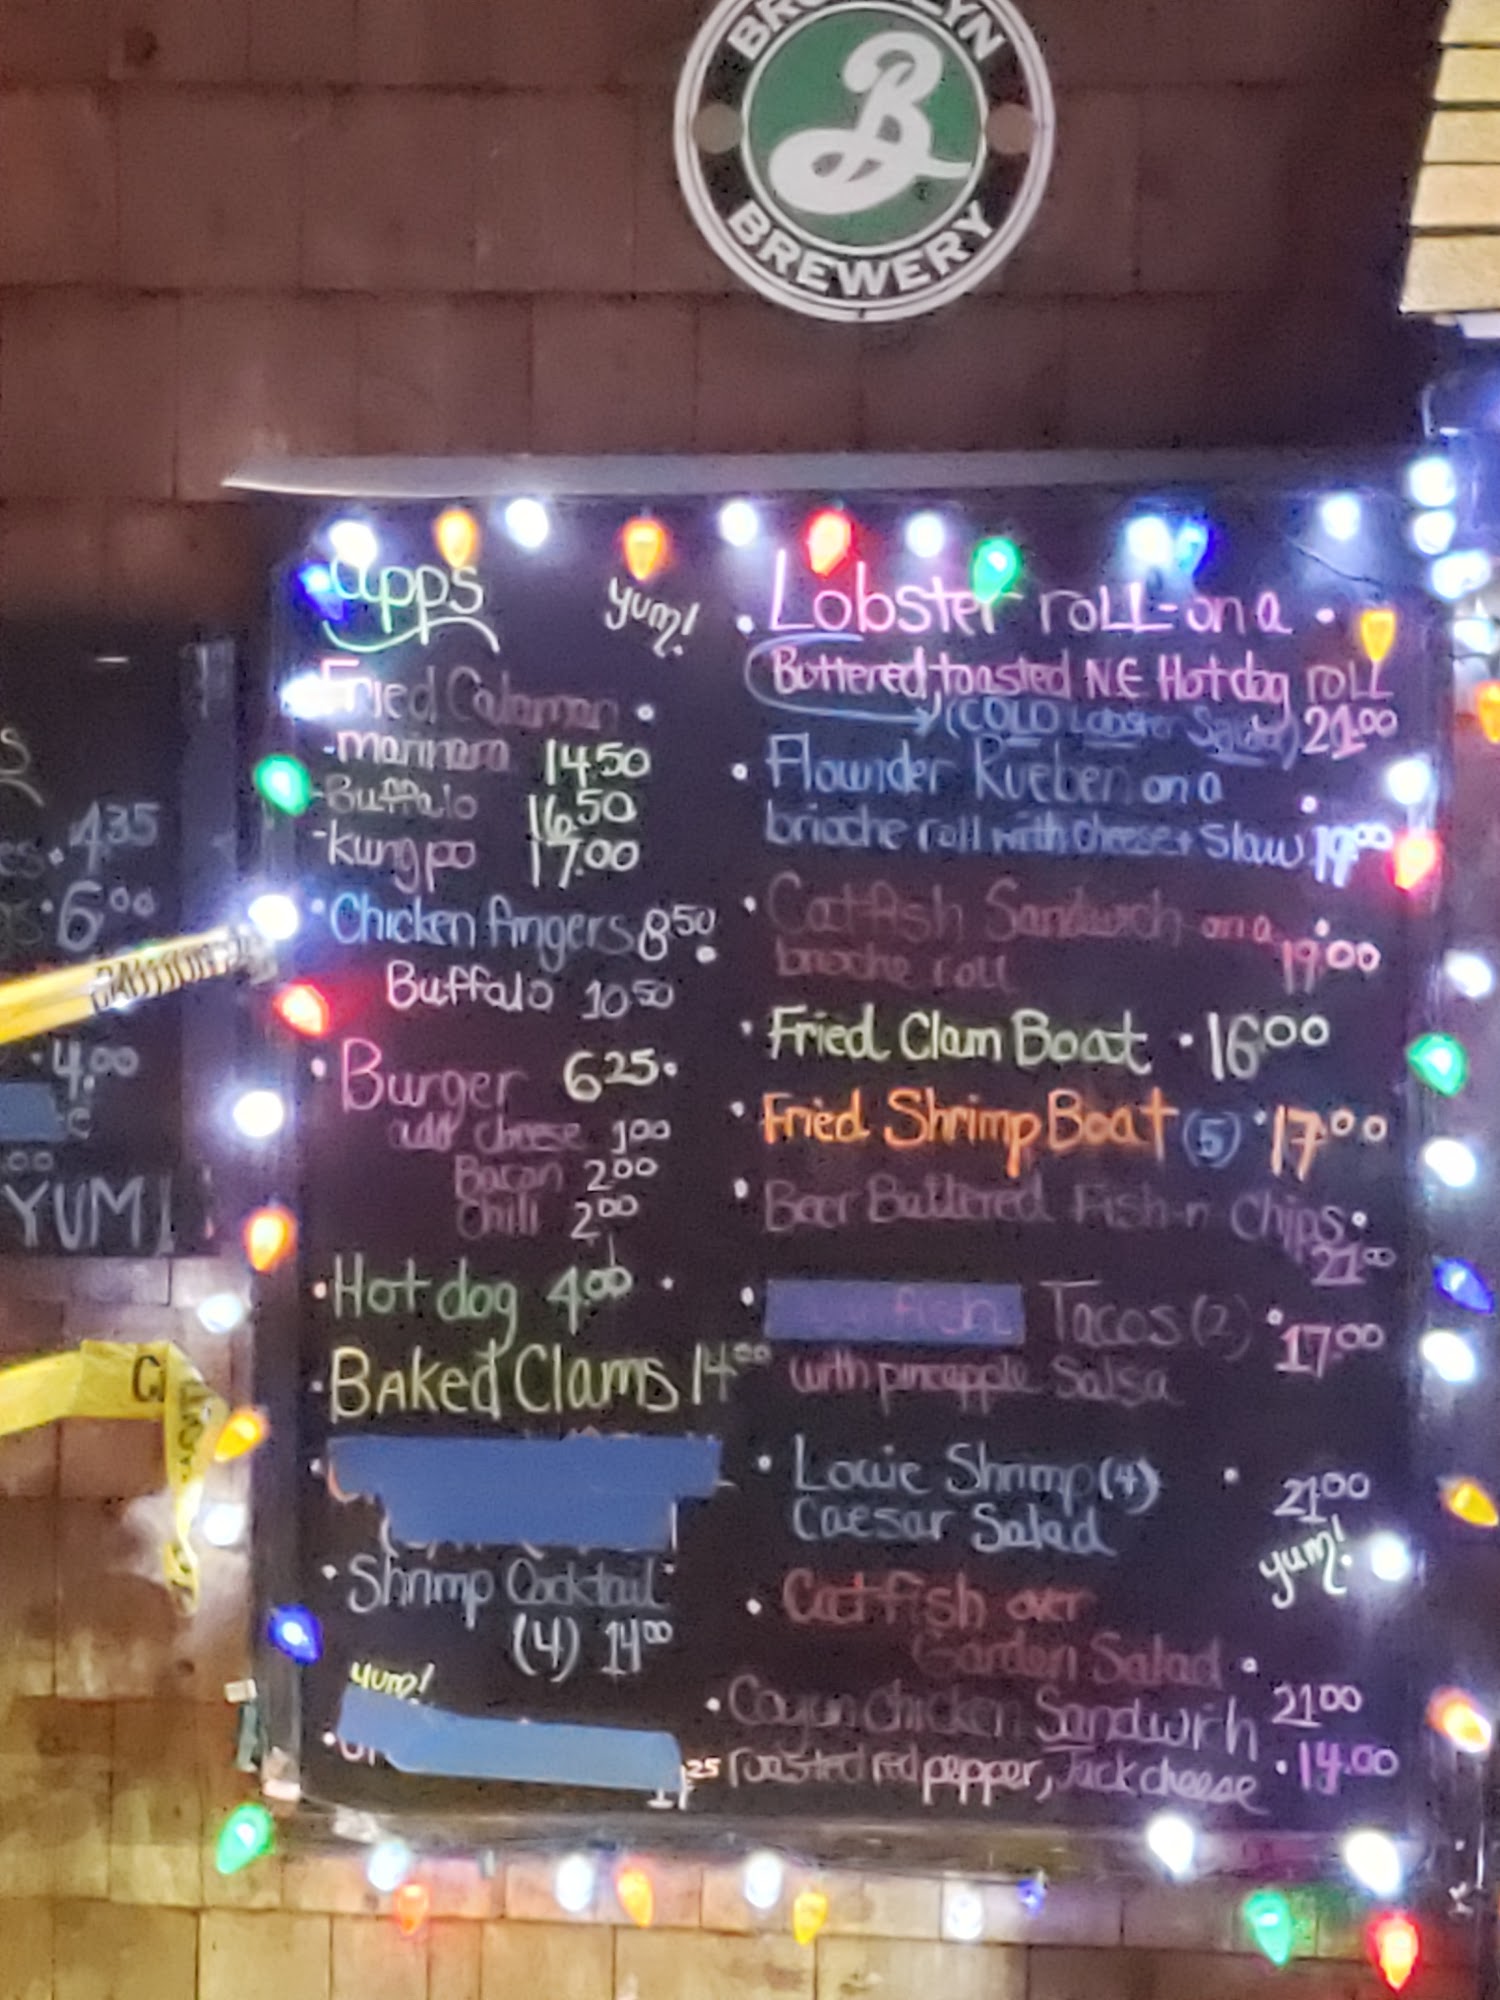 BROOKLYN
BREWERY
apps
yum!
Fried Calamari
-marinara 14.50
-Buffalo 16.50
-kung po 17.00
Chicken fingers 8.50
Buffalo 10.50
Burger 6.25
add cheese 1.00
Bacon 2.00
chili 2.00
Hot dog 4.00
BAKed Clams 14.00
Shrimp Cocktail
(4) 14.00
yum!
25
Lobster roLL-on a
Buttered, toasted N.E Hot dog roLL
(COLD Lobster Salad) 21.00
Flounder Rueben on a
brioche roll with cheese + Slaw 19.00
Catfish Sandwich on a
brioche roll 19.00
Fried Clam Boat 16.00
Fried Shrimp Boat (5) 17.00
Beer Battered Fish-n Chips
21.00
fish Tacos (2) 17.00
with pineapple Salsa
Lowie Shrimp (4) 21.00
Caesar Salad
yum!
Catfish over
Garden Salad 21.00
Cayun chicken Sandwich
roasted red pepper, Jack cheese 14.00
4.35
6.00
CAUTION
4.00
YUM!